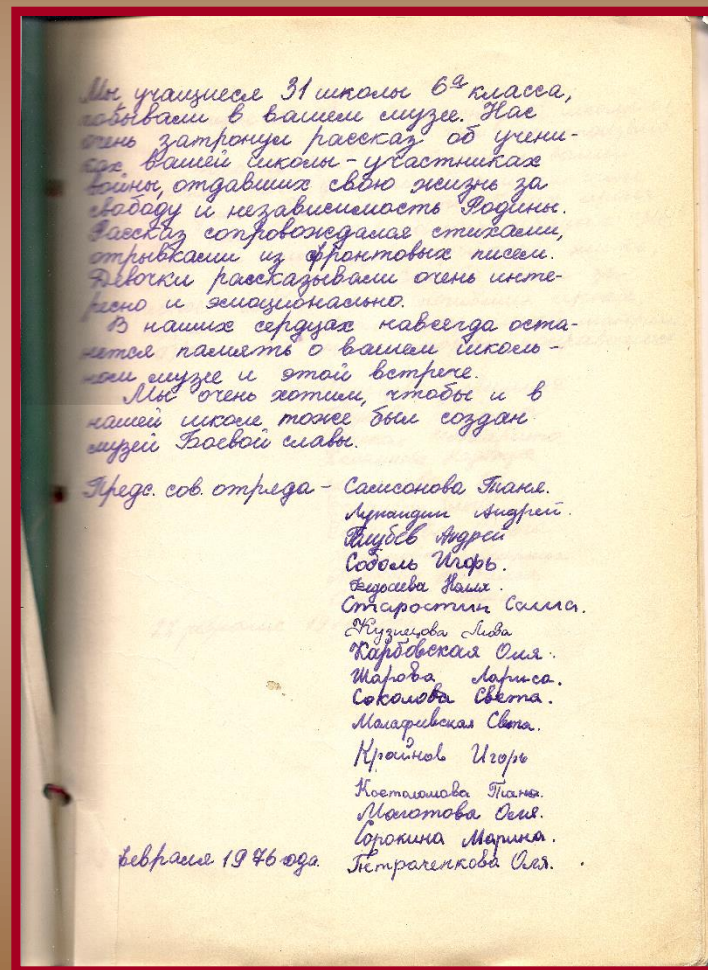 Мы учащиеся 31 школы 6а класса,
побывали в вашем музее. Нас
очень затронул рассказ об учени-
ках вашей школы - участниках
войны, отдавших свою жизнь за
свободу и независимость Родины.
Рассказ сопровождался стихами,
отрывками из фронтовых писем.
Девочки рассказывали очень инте-
ресно и эмоционально.
В наших сердцах навсегда оста-
нется память о вашем школь-
ном музее и этой встрече.
Мы очень хотим, чтобы и в
нашей школе тоже был создан
музей Боевой славы.
Предс. сов. отряда - Самсонова Таня.
Лунандин Андрей.
Андрей
Соболь Игорь.
Федосеева Наля.
Старостин Саша.
Кузнецова Люба
Карбовская Оля.
Шарова Лариса.
Соколова Света.
Света.
Крайнов Игорь
Костоломова Таня.
Маготова Оля.
Сорокина Марина.
февраля 1976 года. Петраченкова Оля.